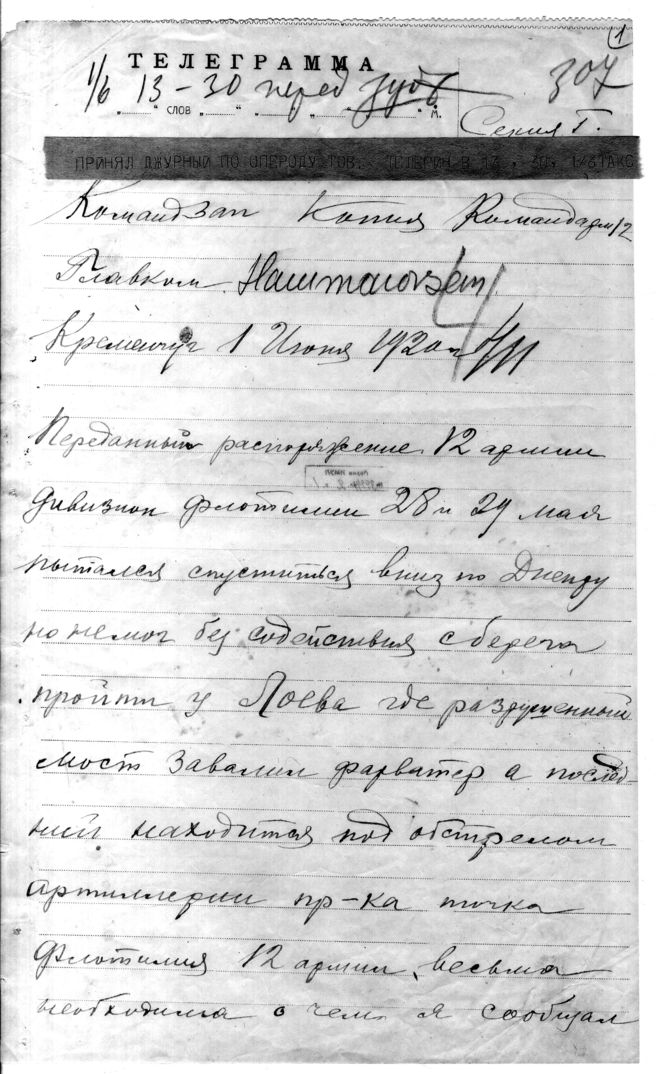 1
ТЕЛЕГРАММА
1/6 13-30 перед
307
СЛОВ
М.
Серия Г.
ПРИНЯЛ ДЖУРНЫЙ ПО ОПЕРОДУ ТОВ. ТЕТЕРИН В 13, 30, 1/6 ТАКС
Командзап Копия Командарм 12
Главком Наштаюгзап
Кременчуг 1 Июня 1920 г
4
Переданный распоряжение 12 армии
дивизион флотилии 28 и 29 мая
пытался спуститься вниз по Днепру
но немог без содействия с берега
пройти у Лоева где раздрушенный
мост завалил фарватер а послед-
ний находится под обстрелом
артиллерии пр-ка точка
Флотилия 12 армии весьма
необходима о чем я сообщал